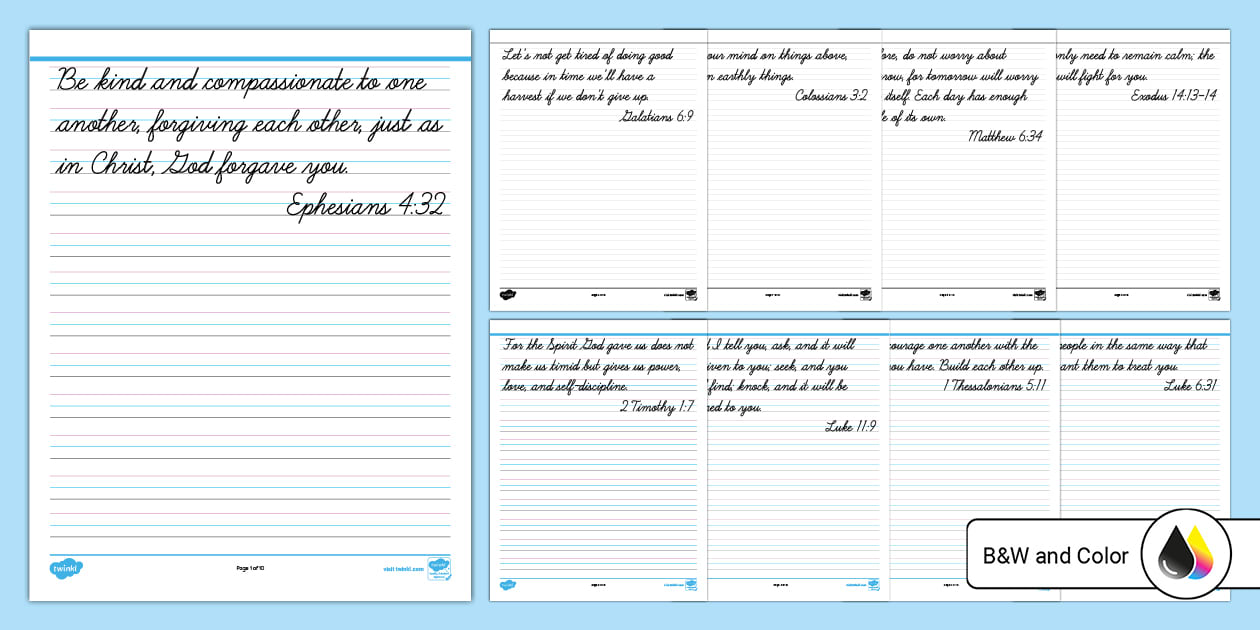 Be kind and compassionate to one
another, forgiving each other, just as
in Christ, God forgave you.
Ephesians 4:32
twinkl
Page 1 of 10
visit twinkl.com
Let's not get tired of doing good
because in time we'll have a
harvest if we don't give up.
Galatians 6:9
twinkl
our mind on things above,
n earthly things.
Colossians 3:2
ore, do not worry about
row, for tomorrow will worry
itself. Each day has enough
le of its own.
Matthew 6:34
only need to remain calm; the
will fight for you.
Exodus 14:13-14
For the Spirit God gave us does not
make us timid but gives us power,
love, and self-discipline.
2 Timothy 1:7
twinkl
I tell you, ask, and it will
iven to you; seek, and you
find; knock, and it will be
ned to you.
Luke 11:9
ourage one another with the
you have. Build each other up.
1 Thessalonians 5:11
people in the same way that
ant them to treat you.
Luke 6:31
B&W and Color